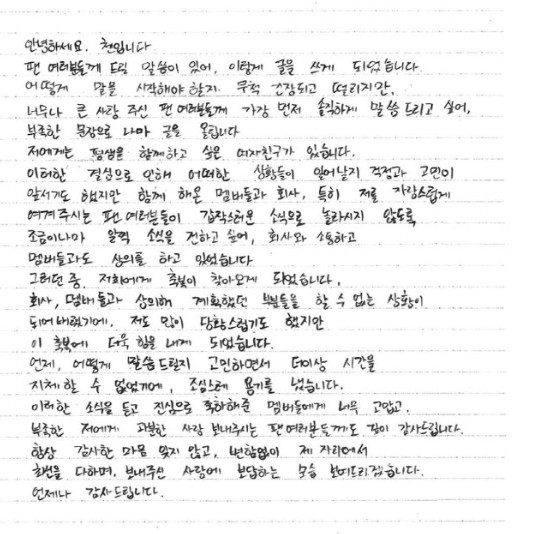 안녕하세요. 첸입니다
팬 여러분들께 드릴 말씀이 있어, 이렇게 글을 쓰게 되었습니다.
어떻게 말을 시작해야 할지 무척 긴장되고 떨리지만,
너무나 큰 사랑 주신 팬 여러분들께 가장 먼저 솔직하게 말씀 드리고 싶어,
부족한 문장으로 나마 글을 올립니다
저에게는 평생을 함께하고 싶은 여자친구가 있습니다.
이러한 결심으로 인해 어떠한 상황들이 일어날지 걱정과 고민이
앞서기도 했지만 함께 해온 멤버들과 회사, 특히 저를 자랑스럽게
여겨주시는 팬 여러분들이 갑작스러운 소식으로 놀라시지 않도록
조금이나마 일찍 소식을 전하고 싶어, 회사와 소통하고
멤버들과도 상의를 하고 있었습니다
그러던 중, 저희에게 축복이 찾아오게 되었습니다.
회사, 멤버들과 상의해 계획했던 부분들을 할 수 없는 상황이
되어버렸기에, 저도 많이 당황스럽기도 했지만
이 축복에 더욱 힘을 내게 되었습니다.
언제, 어떻게 말씀드릴지 고민하면서 더이상 시간을
지체할 수 없었기에, 조심스레 용기를 냈습니다.
이러한 소식을 듣고 진심으로 축하해준 멤버들에게 너무 고맙고,
부족한 저에게 과분한 사랑 보내주시는 팬 여러분들께도 깊이 감사드립니다.
항상 감사한 마음 잊지 않고, 변함없이 제 자리에서
최선을 다하며, 보내주신 사랑에 보답하는 모습 보여드리겠습니다.
언제나 감사드립니다.